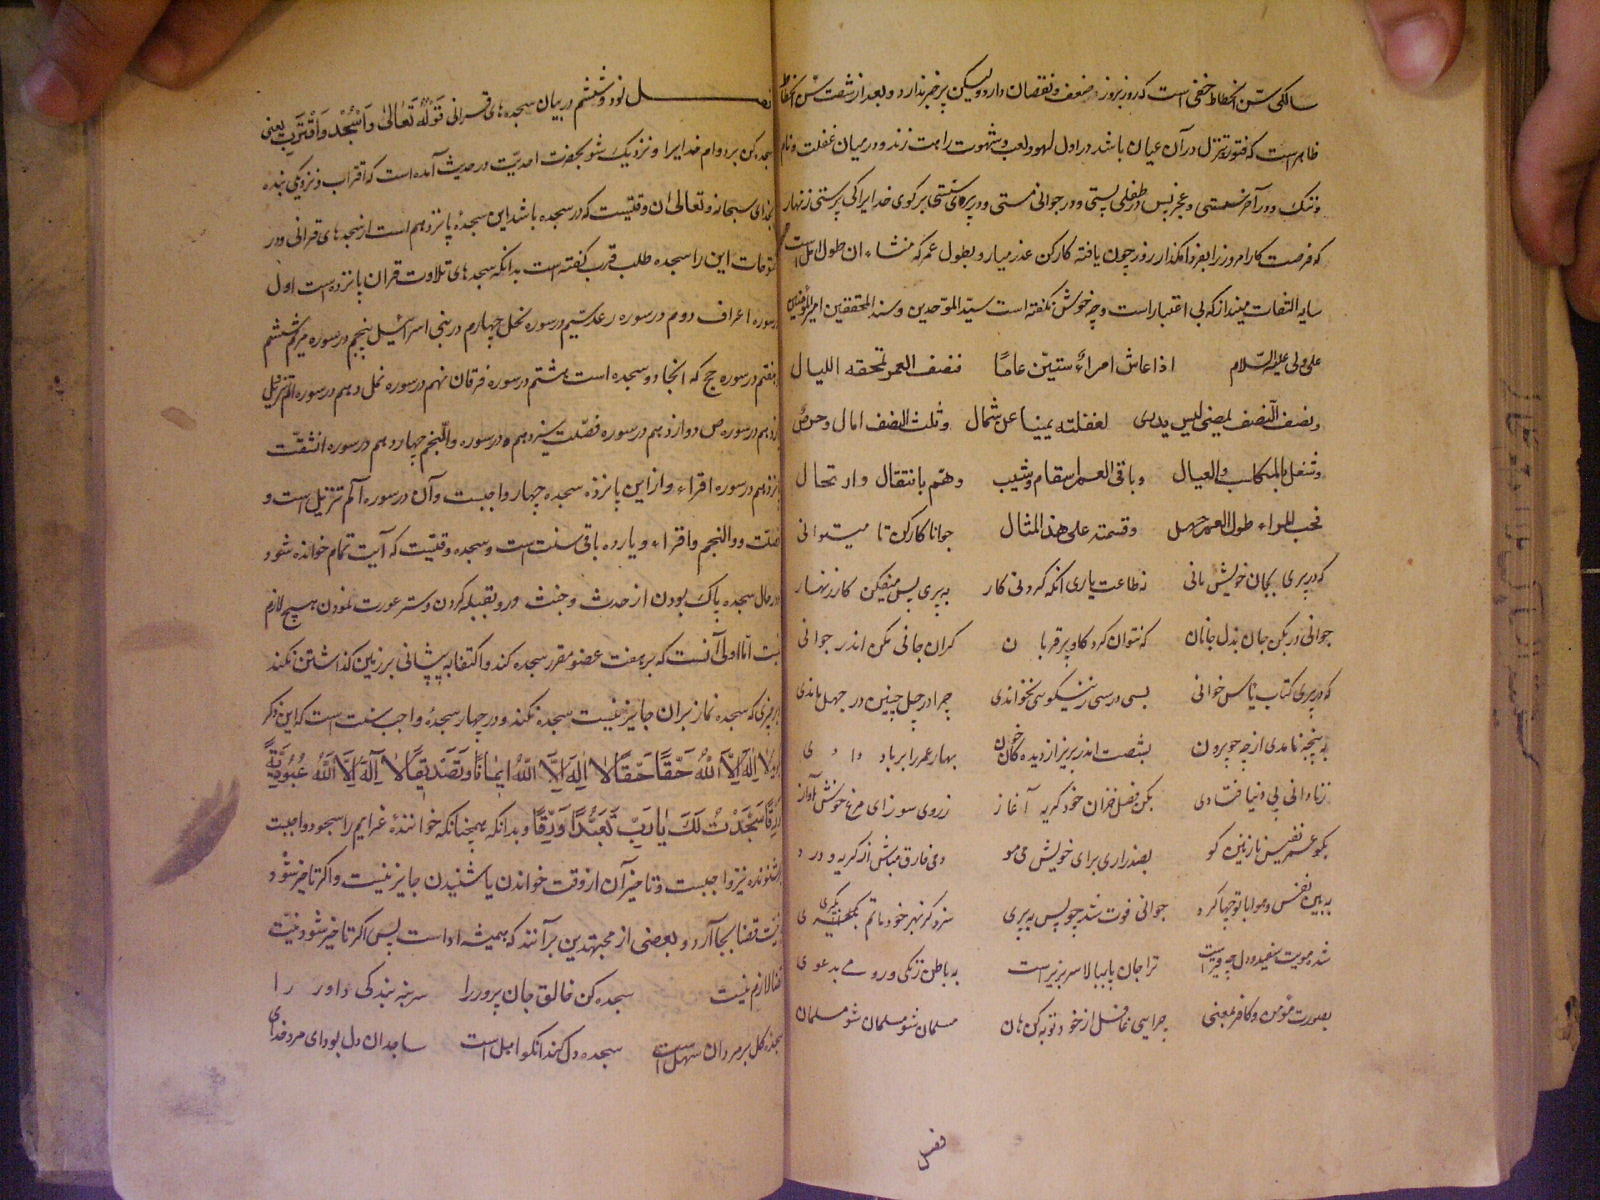 سالکی سن انحطاط خفی است که روز بروز ضعف و نقصان دارد ولیکن پر خبر ندارد و بعد از شصت سن انحطاط
ظاهر است که فتور و تنزل در آن عیان باشد در اول لهو و لعب و شهوت را مت زند و در میان غفلت و نام
و ننک و در آخر سستی و عجز پس در طفلی پستی و در جوانی مستی و در پیری سستی برکوی خدا را کی پرستی زنهار
که فرصت کار امروز را بفردا مکذار روز چون یافته کار کن عذر میار و بطول عمر که منشاء ان طول امل است
سایه التفات مینداز که بی اعتبار است و چه خوش نکفته است سید الموحدین و سند المحققین امیر المؤمنین
علی ولی علیه السلام اذا عاش امراءً ستین عامًا فنصف العمر تمحقه اللیال
ونصف النصف یمضی لیس یدری لغفلته یمینا عن شمال وثلث النصف امال وحرص
وشغل بالمکاسب والعیال وباقی العمر اسقام وشیب وهم بانتقال وارتحال
فحب المراء طول العمر جهل وقسمته علی هذا المثال جوانا کار کن تا میتوانی
که در پیری بجان خویش مانی نه طاعت یاری انکه کردنی کار به پیری پس میفکن کار زنهار
جوانی در بکن جان بذل جانان که نتوان کرد کاو پیر قربان کران جانی مکن اندر جوانی
که در پیری کتاب یأس خوانی بسی درسی ز نیکویی نخواندی چرا در چل چنین در جهل ماندی
به پنجه نامدی از چه چو بیرون بشصت اندر بریز از دیده کان خون بهار عمر را بر باد دادی
ز نادانی پی دنیا فتادی بکن فصل خزان خود کریه آغاز ز روی سوز ای مرغ خوش آواز
بکو عمر نفیس نازنین کو بصد زاری برای خویش می مو دمی فارق مباش از کریه و درد
به بین نفس و هوا با تو چها کرد جوانی فوت شد چو پس به پیری سزد کر بهر خود ماتم بکیری
شد مویت سفید و دل چو قیر است ترا جان پا ببالا سر بزیر است به باطن زنکی و رومی بدعوی
بصورت مؤمن و کافر بمعنی چرایی غافل از خود توبه کن هان مسلمان شو مسلمان شو مسلمان
نفس
فصل نود و ششم در بیان سجده های قرانی قوله تعالی واسجد واقترب یعنی
سجده کن بر دوام خدا یرا و نزدیک شو بحضرت احدیت در حدیث آمده است که اقتراب و نزدیکی بنده
بخدای سبحانه و تعالی ان وقتیست که در سجده باشد این سجدۀ پانزدهم است از سجدهای قرانی و در
فتوحات این را سجده طلب قرب کفته است بدانکه سجدهای تلاوت قران پانزده است اول
در سوره اعراف دوم در سوره رعد سیم در سوره نحل چهارم در بنی اسرائیل پنجم در سوره مریم ششم
و هفتم در سوره حج که انجا دو سجده است هشتم در سوره فرقان نهم در سوره نمل دهم در سوره الم تنزیل
یازدهم در سوره ص دوازدهم در سوره فصلت سیزدهم در سوره والنجم چهاردهم در سوره انشقت
پانزدهم در سوره اقراء و از این پانزده سجده چهار واجبست و آن در سوره الم تنزیل است و
فصلت و والنجم و اقراء و یازده باقی سنت است و سجده وقتیست که آیت تمام خوانده شود
و در حال سجده پاک بودن از حدث و خبث و رو بقبله کردن و ستر عورت نمودن هیچ لازم
نیست اما اولی آنست که بر هفت عضو مقرر سجده کند و اکتفا به پیشانی بر زمین کذاشتن نکند
و بر چیزی که سجده نماز بران جایز نیست سجده نکند و در چهار سجدۀ واجب سنت است که این ذکر
لا اله الا الله حقا حقا لا اله الا الله ایمانا وتصدیقا لا اله الا الله عبودیة
ورقا سجدت لک یا رب تعبدا ورقا و بدانکه همچنانکه خوانندۀ عزایم را سجود واجبست
شنونده نیز واجبست و تاخیر آن از وقت خواندن یا شنیدن جایز نیست و اکر تاخیر شود
نیت قضا بجا آرد و بعضی از مجتهدین برآنند که همیشه اداست پس اکر تاخیر شود نیت
قضا لازم نیست سجده کن خالق جان پرور را سر بنه بندکی داور را
سجده کل بر مردان سهل است سجده دل کند انکو اهل است ساجدان دل بود ای مرد خدای